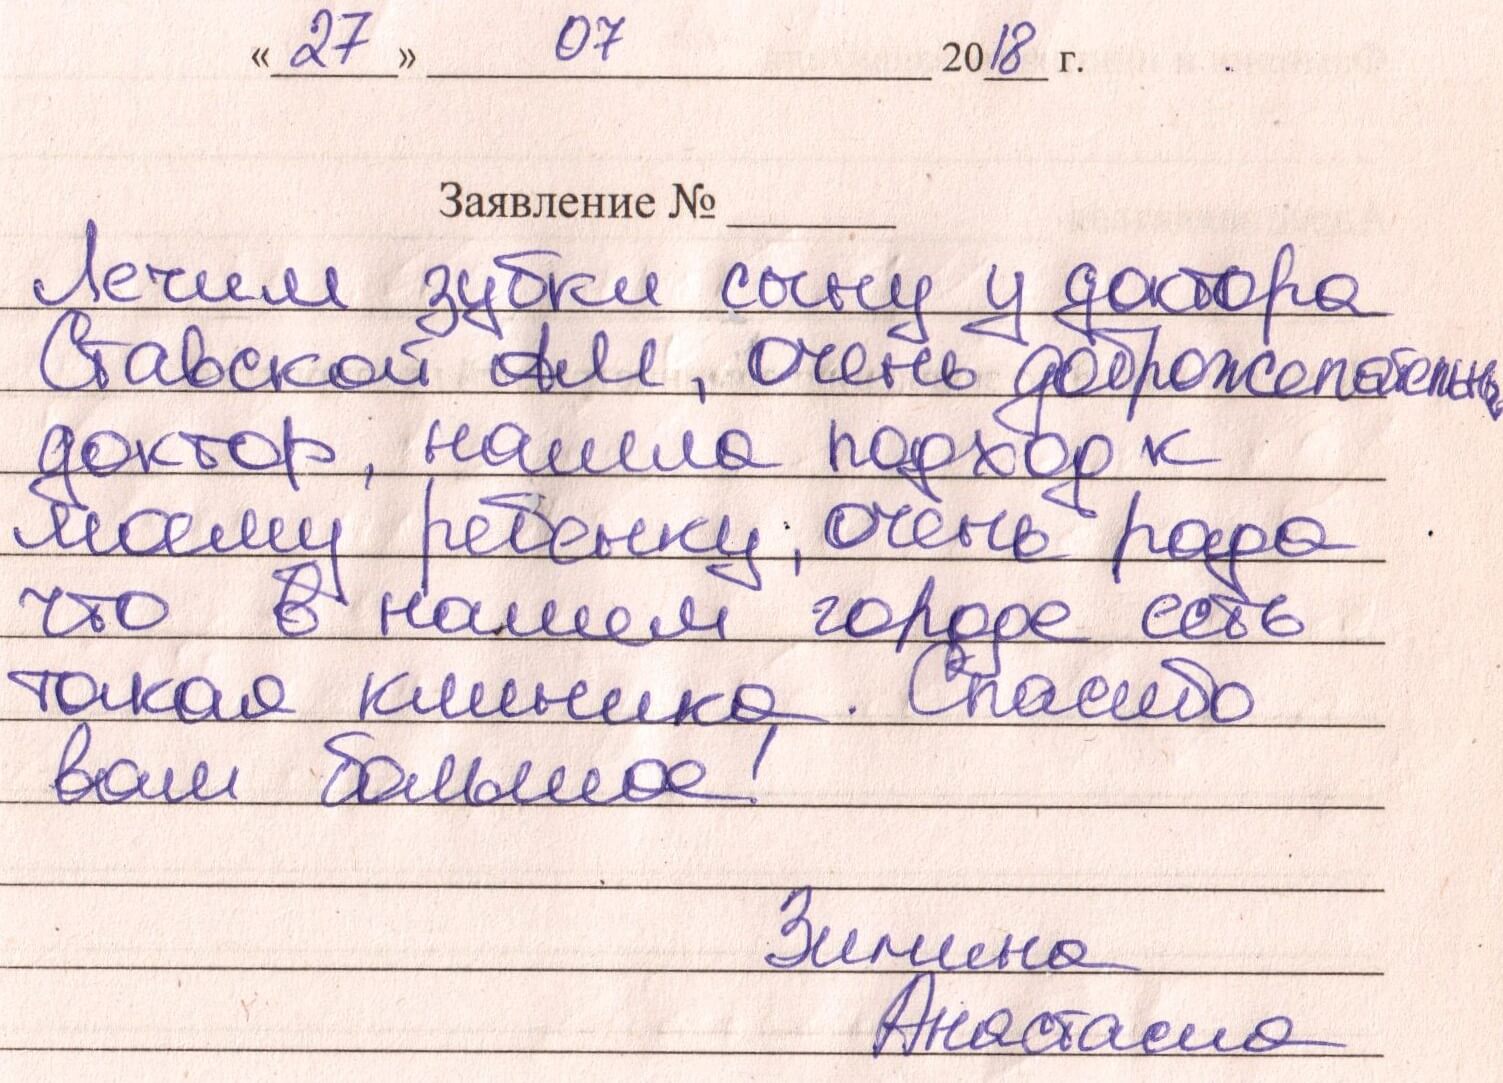 « 27 » 07 2018 г.
Заявление №
Лечим зубки сыну у доктора
Ставской АМ, очень доброжелательный
доктор, нашла подход к
моему ребенку, очень рада
что в нашем городе есть
такая клиника. Спасибо
вам большое!
Зимина
Анастасия